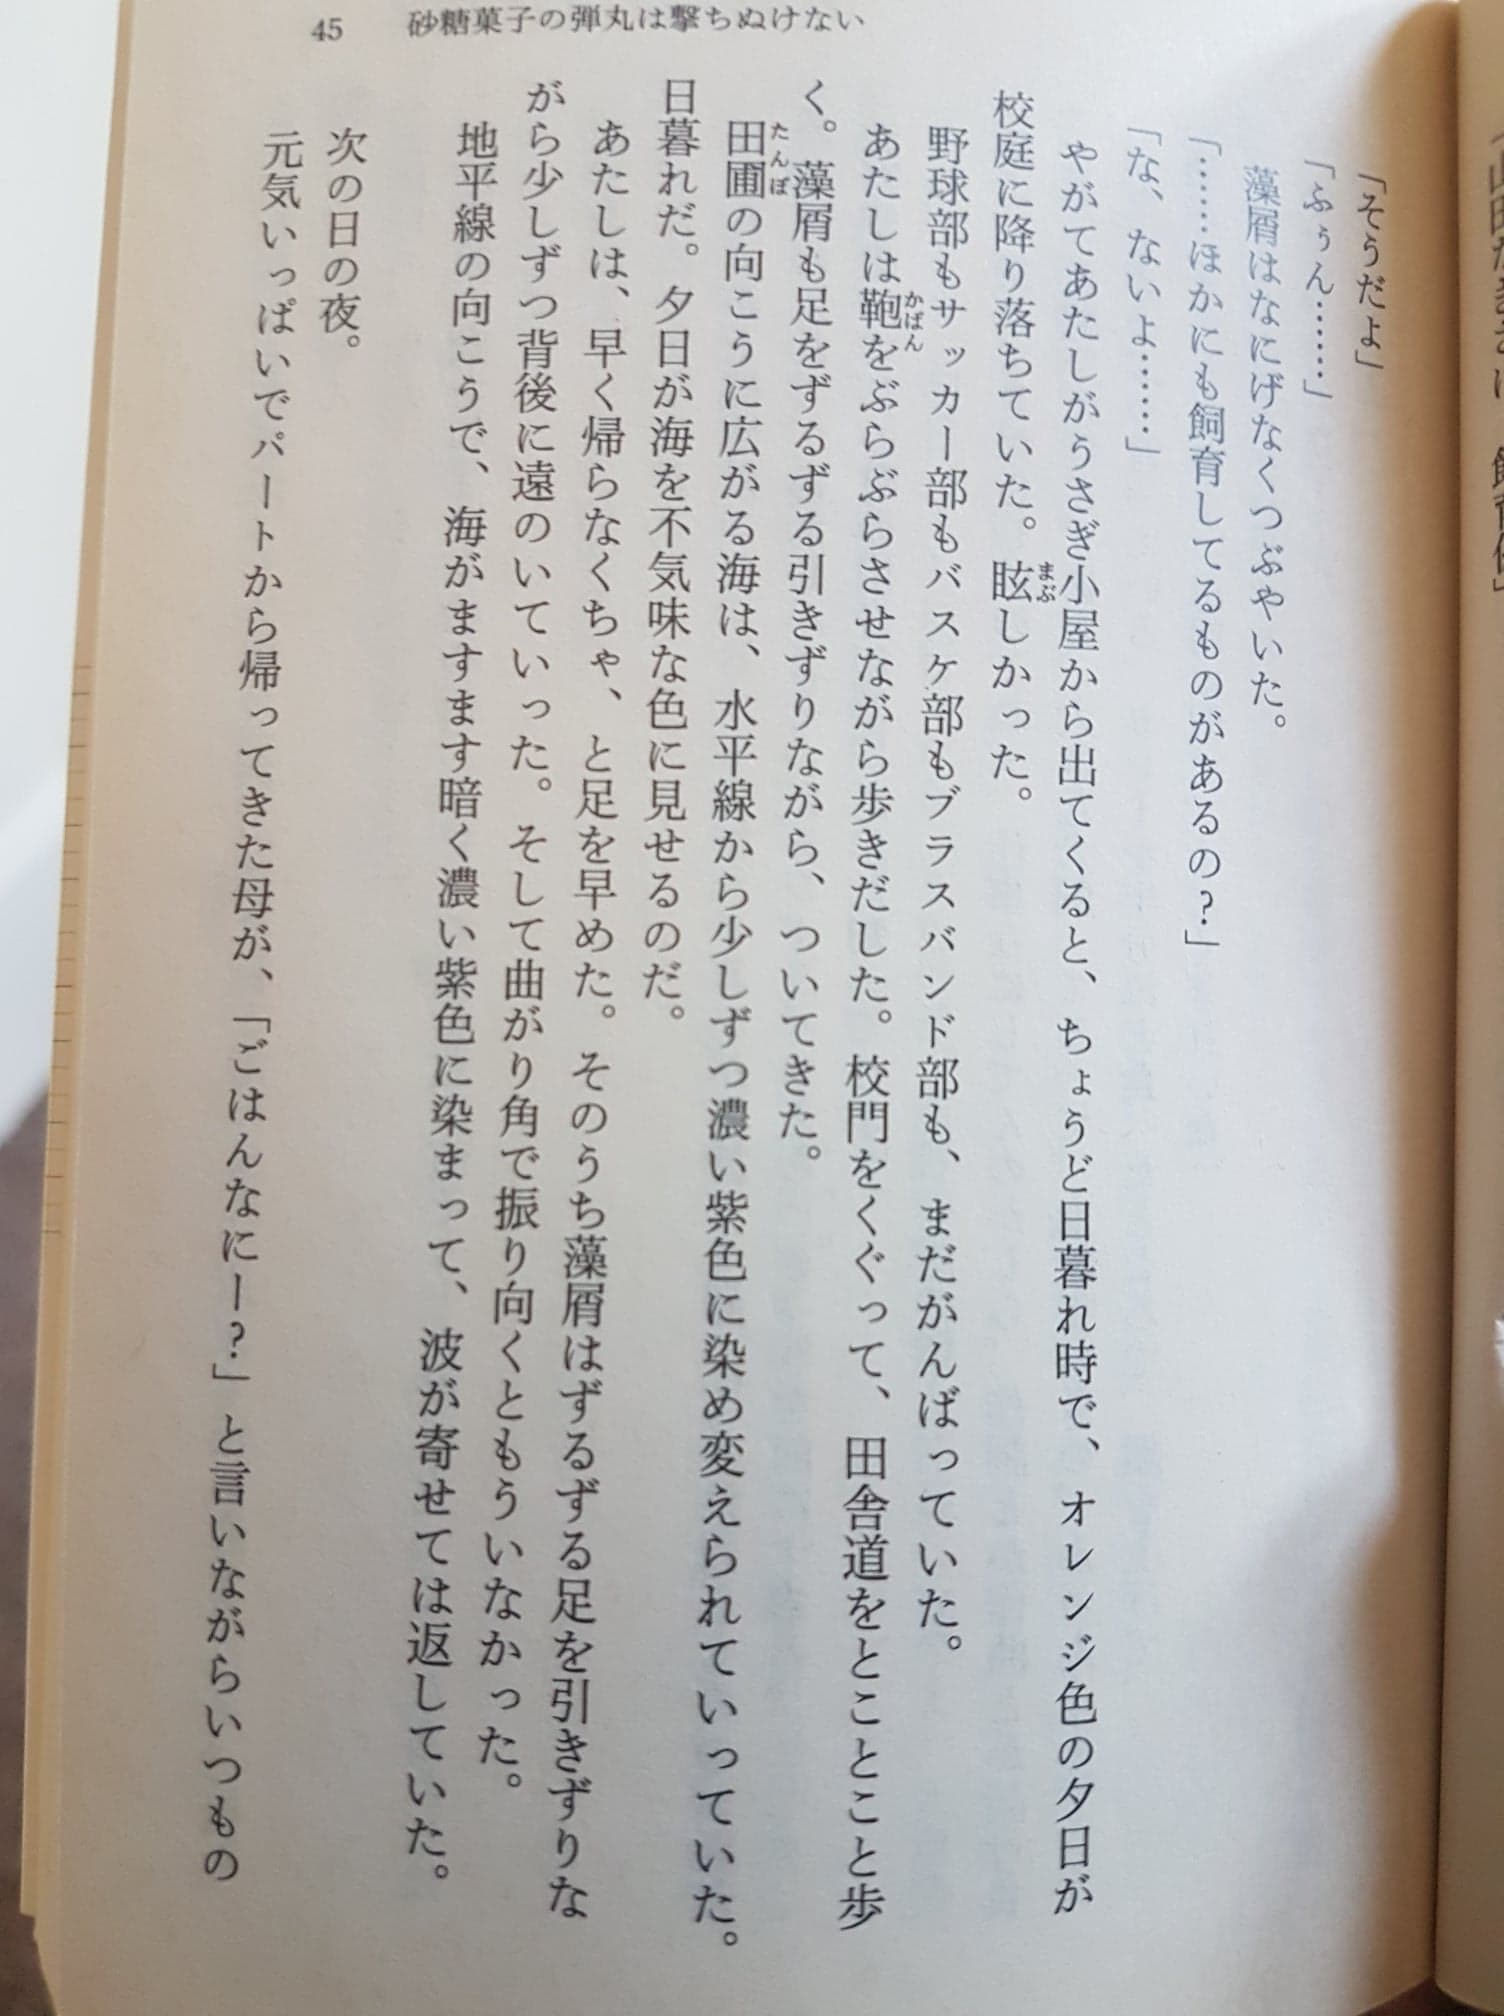 45 砂糖菓子の弾丸は撃ちぬけない
「そうだよ」
「ふぅん……」
藻屑はなにげなくつぶやいた。
「……ほかにも飼育してるものがあるの?」
「な、ないよ……」
やがてあたしがうさぎ小屋から出てくると、ちょうど日暮れ時で、オレンジ色の夕日が
校庭に降り落ちていた。眩しかった。
野球部もサッカー部もバスケ部もブラスバンド部も、まだがんばっていた。
あたしは鞄をぶらぶらさせながら歩きだした。校門をくぐって、田舎道をとことこと歩
く。藻屑も足をずるずる引きずりながら、ついてきた。
田圃の向こうに広がる海は、水平線から少しずつ濃い紫色に染め変えられていっていた。
日暮れだ。夕日が海を不気味な色に見せるのだ。
あたしは、早く帰らなくちゃ、と足を早めた。そのうち藻屑はずるずる足を引きずりな
がら少しずつ背後に遠のいていった。そして曲がり角で振り向くともういなかった。
地平線の向こうで、海がますます暗く濃い紫色に染まって、波が寄せては返していた。
次の日の夜。
元気いっぱいでパートから帰ってきた母が、「ごはんなにー?」と言いながらいつもの